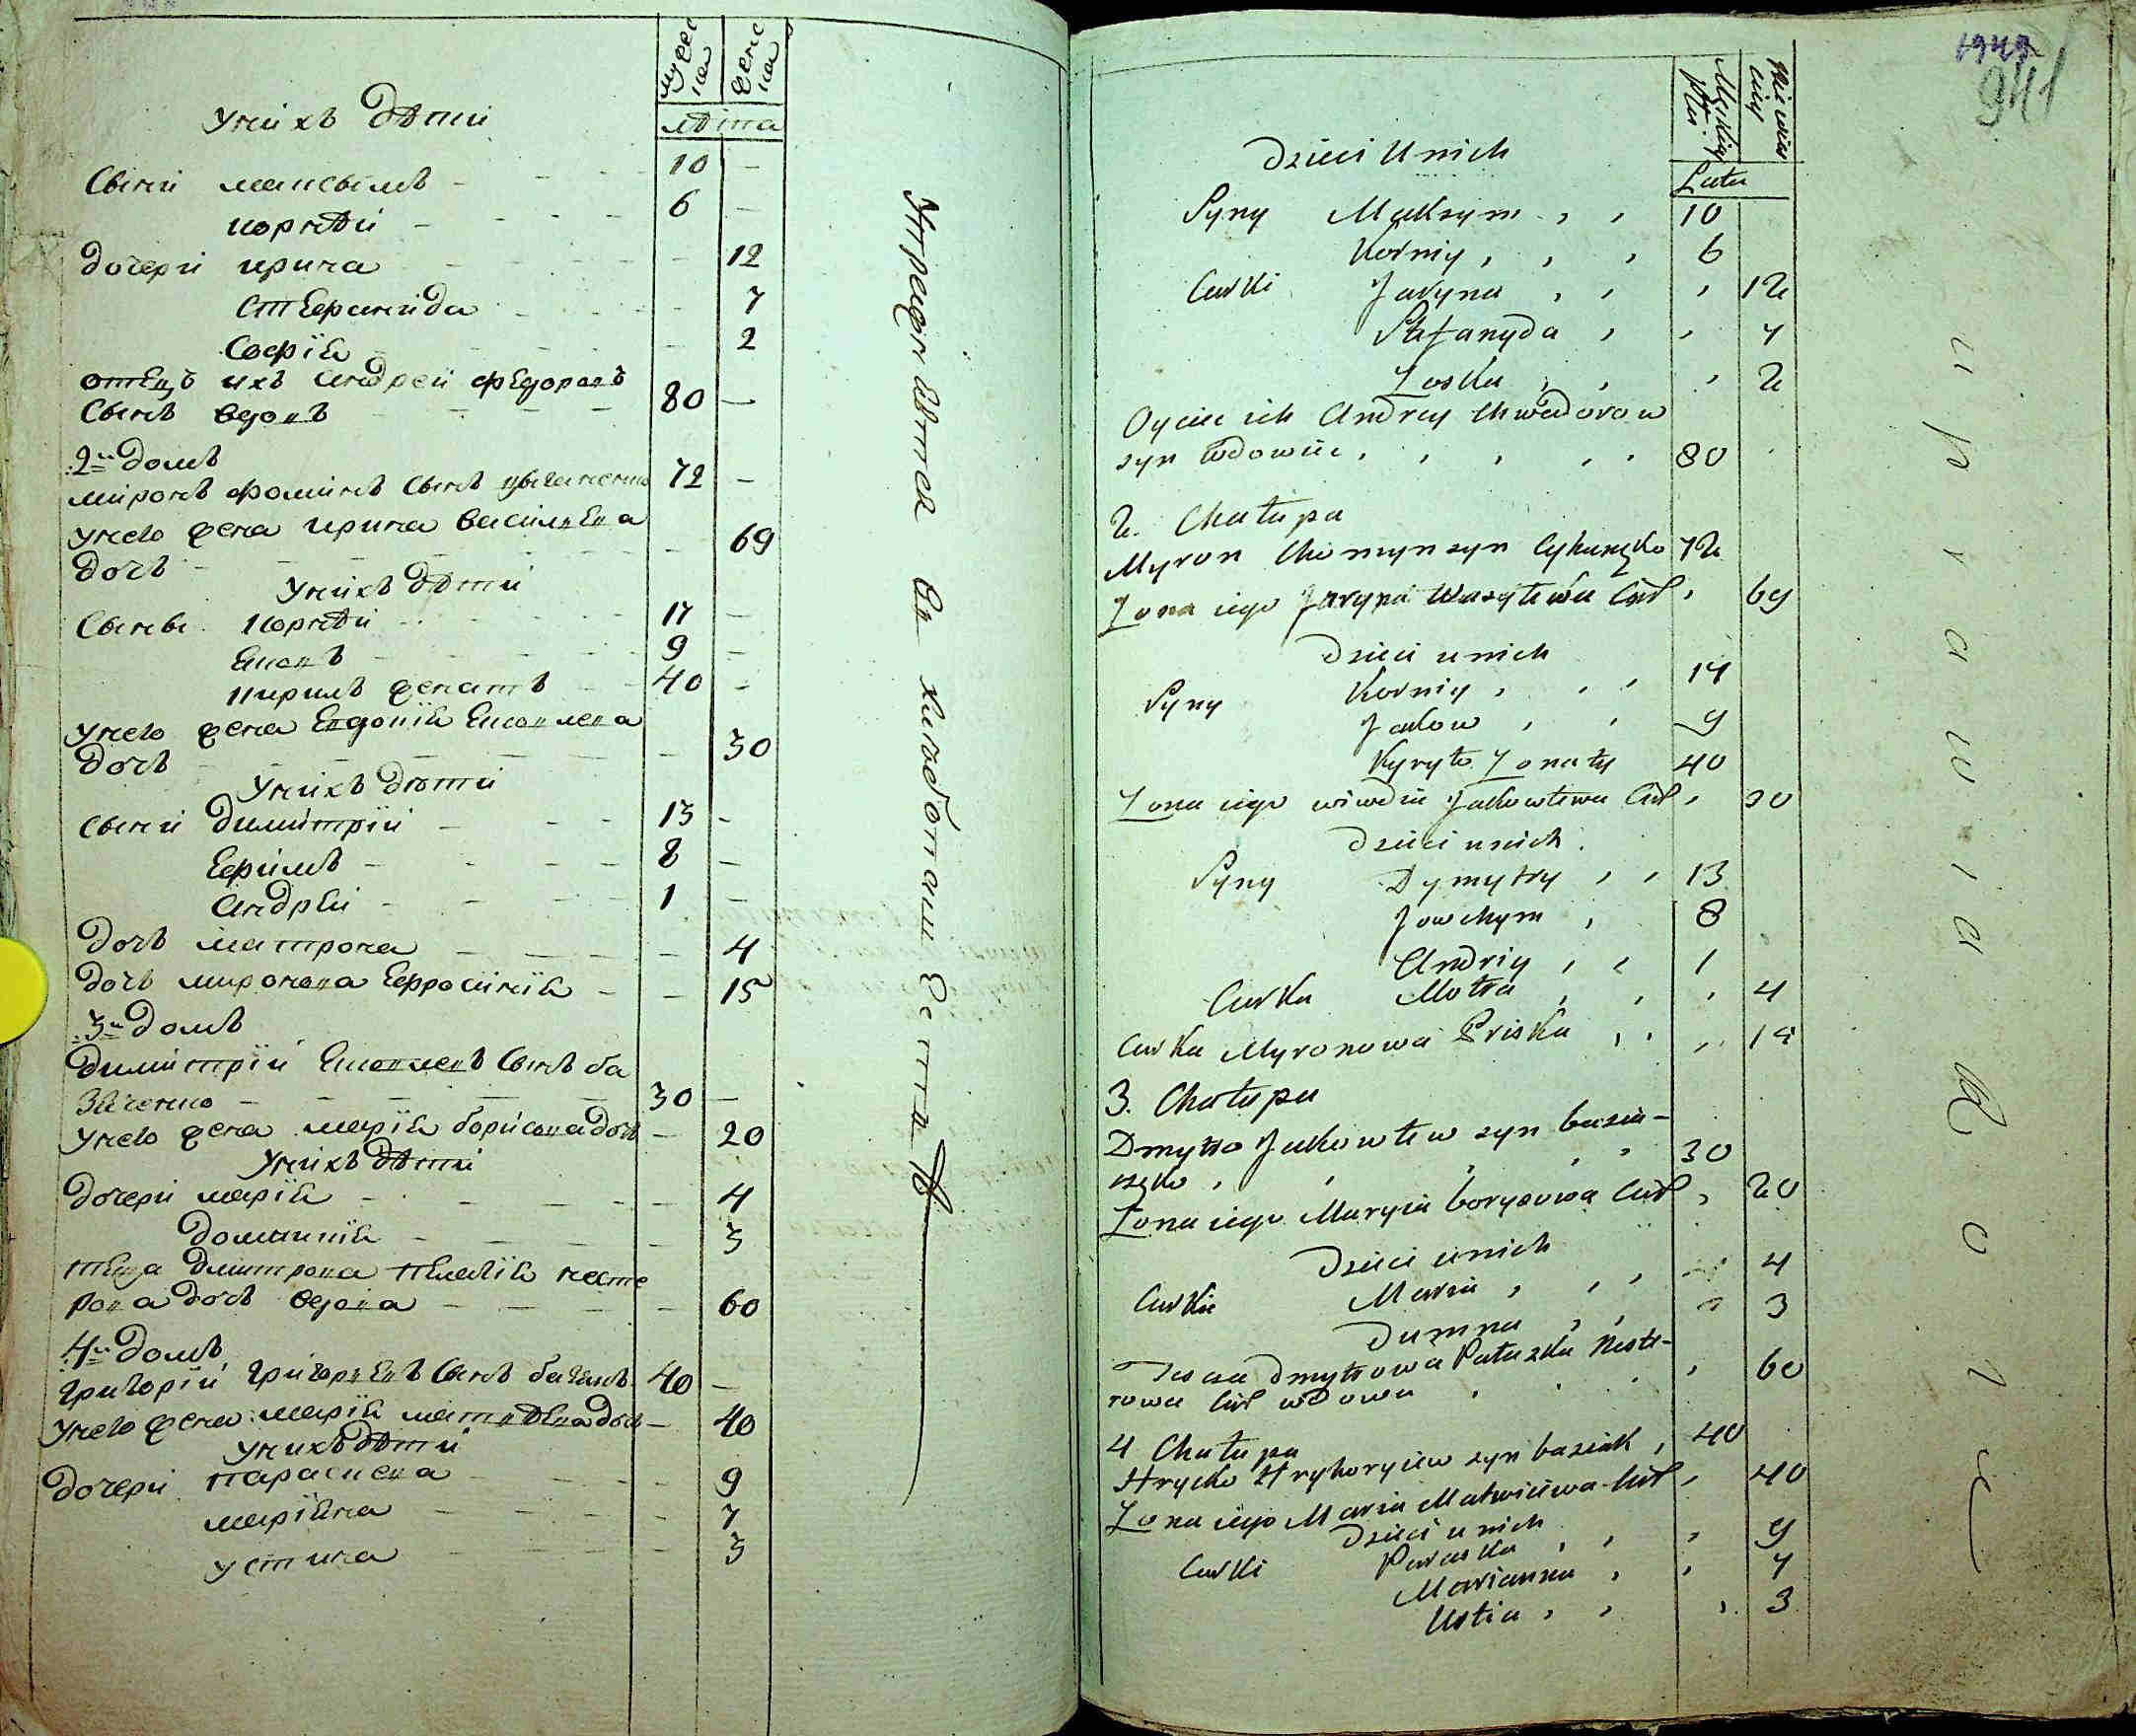 мужес
ка
женс
ка
лѣта
у нихъ дѣти
сыни максымъ 10 —
корнѣй 6 —
дочери ирина — 12
стефанида — 7
софія — 2
отецъ ихъ андрей федоровъ
сынъ вдовъ 80 —
2й домъ
миронъ фоминъ сынъ 72 —
у него жена ирина василева
дочь — 69
у нихъ дѣти
сынове корнѣй 17 —
яковъ 9 —
кирилъ женатъ 40 —
у него жена евдокія яковлева
дочь — 30
у нихъ дѣти
сыни димитрій 13 —
ефимъ 8 —
андрѣй 1 —
дочь матрона — 4
дочь миронова ефросинія — 15
3й домъ
димитрій яковлевъ сынъ ба
зяченко 30 —
у него жена марія борисова дочь — 20
у нихъ дѣти
дочери марія — 4
домникія — 3
теща дмитрова пелагія несте
рова дочь вдова — 60
4й домъ
григорій григорьевъ сынъ 40 —
у него жена марія матвѣева дочь — 40
у нихъ дѣти
дочери параскева — 9
маріяна — 7
устина — 3
941
Męzkiey
Płci
Lata
Dzieci u nich
Syny Maksym 10
Korniy 6
Curki Jaryna 12
Stefanyda 7
Zoska 2
Oyciec ich Andrey Chwedorow
syn wdowiec 80
2. Chałupa
Myron Chomyn syn 72
Zona iego Jaryna Wasylewa Cur 69
Dzieci u nich
Syny Korniy 17
Jakow 9
Kyryło Zonaty 40
Zona iego Jakowlewa Cur 30
Dzieci u nich
Syny Dymytry 13
Jowchym 8
Andriy 1
Curka Motra 4
Curka Myronowa Priska 15
3. Chałupa
Dmytro Jakowlew syn bazia-
częko 30
Zona iego Maryia borysowa Cur 20
Dzieci u nich
Curki Maria 4
Dumna 3
Dmytrowa Pałaszka Neste-
rowa Cur wdowa 60
4 Chałupa
Hrycko Hryhoryiew syn baziak 40
Zona iego Maria Matwiiewa Cur 40
Dzieci u nich
Curki Paraska 9
Marianna 7
Ustia 3